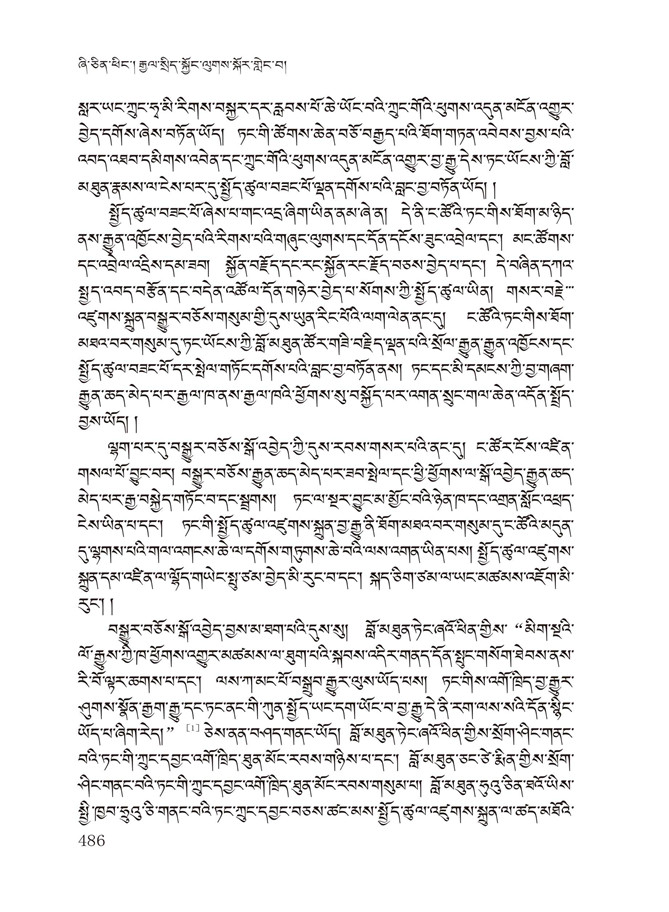 ཞི་ཅིན་ཕིང་། རྒྱལ་སྲིད་སྐྱོང་ལུགས་སྐོར་གླེང་བ།
སླར་ཡང་ཀྲུང་ཧྭ་མི་རིགས་བསྐྱར་དར་རླབས་པོ་ཆེ་ཡོང་བའི་ཀྲུང་གོའི་ཕུགས་འདུན་མངོན་འགྱུར་
བྱེད་དགོས་ཞེས་བཏོན་ཡོད། ཏང་གི་ཚོགས་ཆེན་བཅོ་བརྒྱད་པའི་ཐོག་གཏན་འབེབས་བྱས་པའི་
འབད་འཐབ་དམིགས་འབེན་དང་ཀྲུང་གོའི་ཕུགས་འདུན་མངོན་འགྱུར་བྱ་རྒྱུ་དེས་ཏང་ཡོངས་ཀྱི་བློ་
མཐུན་རྣམས་ལ་ངེས་པར་དུ་སྤྱོད་ཚུལ་བཟང་པོ་ལྡན་དགོས་པའི་བླང་བྱ་བཏོན་ཡོད། །
སྤྱོད་ཚུལ་བཟང་པོ་ཞེས་པ་གང་འདྲ་ཞིག་ཡིན་ནམ་ཞེ་ན། དེ་ནི་ང་ཚོའི་ཏང་གིས་ཐོག་མ་ཉིད་
ནས་རྒྱུན་འཁྱོངས་བྱེད་པའི་རིགས་པའི་གཞུང་ལུགས་དང་དོན་དངོས་ཟུང་འབྲེལ་དང་། མང་ཚོགས་
དང་འབྲེལ་འདྲིས་དམ་ཟབ། སྐྱོན་བརྗོད་དང་རང་སྐྱོན་རང་རྗོད་བཅས་བྱེད་པ་དང་། དེ་བཞིན་དཀའ་
སྤྱད་འབད་བརྩོན་དང་བདེན་འཚོལ་དོན་གཉེར་བྱེད་པ་སོགས་ཀྱི་སྤྱོད་ཚུལ་ཡིན། གསར་བརྗེ་་་
འཛུགས་སྐྲུན་བསྒྱུར་བཅོས་གསུམ་གྱི་དུས་ཡུན་རིང་པོའི་ལག་ལེན་ནང་དུ། ང་ཚོའི་ཏང་གིས་ཐོག་
མཐའ་བར་གསུམ་དུ་ཏང་ཡོངས་ཀྱི་བློ་མཐུན་ཚོར་གཟི་བརྗིད་ལྡན་པའི་སྲོལ་རྒྱུན་རྒྱུན་འཁྱོངས་དང་
སྤྱོད་ཚུལ་བཟང་པོ་དར་སྤེལ་གཏོང་དགོས་པའི་བླང་བྱ་བཏོན་ནས། ཏང་དང་མི་དམངས་ཀྱི་བྱ་གཞག་
རྒྱུན་ཆད་མེད་པར་རྒྱལ་ཁ་ནས་རྒྱལ་ཁའི་ཕྱོགས་སུ་བསྐྱོད་པར་འགན་སྲུང་གལ་ཆེན་འདོན་སྤྲོད་
བྱས་ཡོད། །
ལྷག་པར་དུ་བསྒྱུར་བཅོས་སྒོ་འབྱེད་ཀྱི་དུས་རབས་གསར་པའི་ནང་དུ། ང་ཚོར་ངོས་འཛིན་
གསལ་པོ་བྱུང་བར། བསྒྱུར་བཅོས་རྒྱུན་ཆད་མེད་པར་ཟབ་སྤེལ་དང་ཕྱི་ཕྱོགས་ལ་སྒོ་འབྱེད་རྒྱུན་ཆད་
མེད་པར་རྒྱ་བསྐྱེད་གཏོང་བ་དང་སྦྲགས། ཏང་ལ་སྔར་བྱུང་མ་མྱོང་བའི་ཉེན་ཁ་དང་འགྲན་སློང་འཕྲད་
ངེས་ཡིན་པ་དང་། ཏང་གི་སྤྱོད་ཚུལ་འཛུགས་སྐྲུན་བྱ་རྒྱུ་ནི་ཐོག་མཐའ་བར་གསུམ་དུ་ང་ཚོའི་མདུན་
དུ་ལྷགས་པའི་གལ་འགངས་ཆེ་ལ་དགོས་གཏུགས་ཆེ་བའི་ལས་འགན་ཡིན་པས། སྤྱོད་ཚུལ་འཛུགས་
སྐྲུན་དམ་འཛིན་ལ་ལྷོད་གཡེང་སྤུ་ཙམ་བྱེད་མི་རུང་བ་དང་། སྐད་ཅིག་ཙམ་ལ་ཡང་མཚམས་འཇོག་མི་
རུང་། །
བསྒྱུར་བཅོས་སྒོ་འབྱེད་བྱས་མ་ཐག་པའི་དུས་སུ། བློ་མཐུན་ཏེང་ཞའོ་ཕིན་གྱིས་ “མིག་སྔའི་
ལོ་རྒྱུས་ཀྱི་ཁ་ཕྱོགས་འགྱུར་མཚམས་ལ་ཐུག་པའི་སྐབས་འདིར་གནད་དོན་སྤུང་གསོག་ཐེབས་ནས་
རི་བོ་ལྟར་ཆགས་པ་དང་། ལས་ཀ་མང་པོ་བསྒྲུབ་རྒྱུར་ལུས་ཡོད་པས། ཏང་གིས་འགོ་ཁྲིད་བྱ་རྒྱུར་
ཤུགས་སྣོན་རྒྱག་རྒྱུ་དང་ཏང་ནང་གི་ཀུན་སྤྱོད་ཡང་དག་ཡོང་བ་བྱ་རྒྱུ་དེ་ནི་རག་ལས་མའི་དོན་སྙིང་
ཡོད་པ་ཞིག་རེད།” [1] ཅེས་ནན་བཤད་གནང་ཡོད། བློ་མཐུན་ཏེང་ཞའོ་ཕིན་གྱིས་སྲོག་ཤིང་གནང་
བའི་ཏང་གི་ཀྲུང་དབྱང་འགོ་ཁྲིད་ཐུན་མོང་རབས་གཉིས་པ་དང་། བློ་མཐུན་ཅང་ཙེ་མིན་གྱིས་སྲོག་
ཤིང་གནང་བའི་ཏང་གི་ཀྲུང་དབྱང་འགོ་ཁྲིད་ཐུན་མོང་རབས་གསུམ་པ། བློ་མཐུན་ཧུའུ་ཅིན་ཐའོ་ཡིས་
སྤྱི་ཁྱབ་ཧྲུའུ་ཅི་གནང་བའི་ཏང་ཀྲུང་དབྱང་བཅས་ཚང་མས་སྤྱོད་ཚུལ་འཛུགས་སྐྲུན་ལ་ཚད་མཐོའི་
486